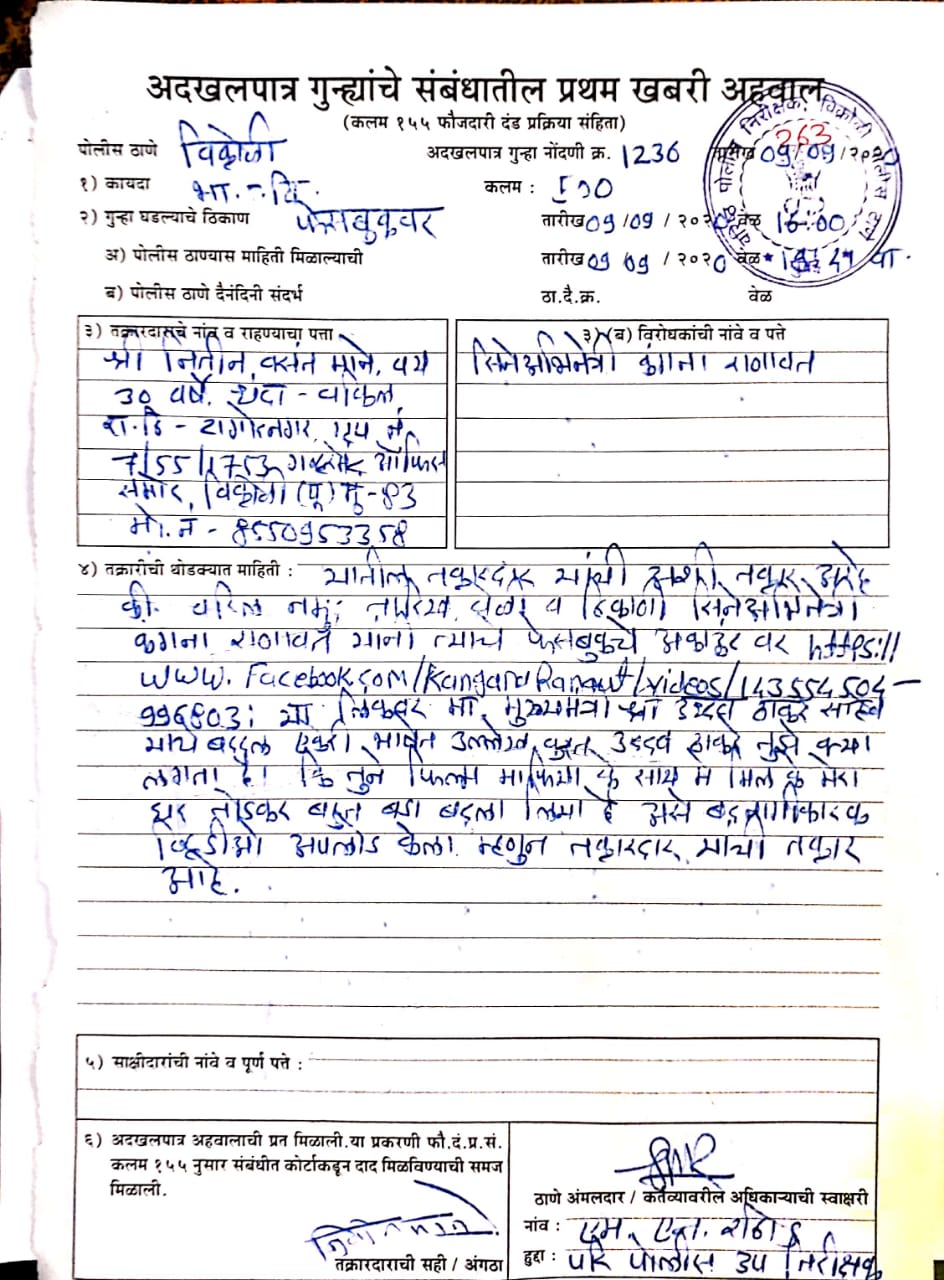 अदखलपात्र गुन्ह्यांचे संबंधातील प्रथम खबरी अहवाल
(कलम १५५ फौजदारी दंड प्रक्रिया संहिता)
पोलीस ठाणे विक्रोळी अदखलपात्र गुन्हा नोंदणी क्र. 1236 तारीख 09/09/२०२०
263
१) कायदा भा.द.वि. कलम : ५००
२) गुन्हा घडल्याचे ठिकाण फेसबुकवर तारीख 09/09/२०२० वेळ 16:00
अ) पोलीस ठाण्यास माहिती मिळाल्याची तारीख 09/09/२०२० वेळ वा.
ब) पोलीस ठाणे दैनंदिनी संदर्भ ठा.दै.क्र. वेळ
३) तक्रारदाराचे नांव व राहण्याचा पत्ता
श्री नितीन वसंत माने, वय
30 वर्षे, धंदा - वकिल,
रा.ठि - टागोरनगर, नं
7/55/1753, ऑफिस
समोर, विक्रोळी (पू) मुं-83
मो.नं - 8550953358
३) (ब) विरोधकांची नांवे व पत्ते
सिनेअभिनेत्री कंगना राणावत
४) तक्रारीची थोडक्यात माहिती : यातील तक्रारदार यांची अशी तक्रार आहे
की, वरिल नमुद तारिख वेळी व ठिकाणी सिनेअभिनेत्री
कंगना राणावत यांनी त्यांचे फेसबुकचे अकाऊंट वर https://
www.Facebook.com/KanganaRanaut/videos/143554504-
996803: या लिंकवर मा. मुख्यमंत्री श्री उध्दव ठाकरे साहेब
यांचे बद्दल एकेरी भाषेत उल्लेख करुन उद्दव ठाकरे तुझे क्या
लगता है। कि तुने फिल्म माफिया के साथ मे मिल के मेरा
घर तोडकर बहुत बडा बदला लिया है असे बदनामीकारक
व्हिडीओ अपलोड केला म्हणुन तक्रारदार यांची तक्रार
आहे.
५) साक्षीदारांची नांवे व पूर्ण पत्ते :
६) अदखलपात्र अहवालाची प्रत मिळाली.या प्रकरणी फौ.दं.प्र.सं.
कलम १५५ नुसार संबंधीत कोर्टाकडून दाद मिळविण्याची समज
मिळाली.
तक्रारदाराची सही / अंगठा
ठाणे अंमलदार / कर्तव्यावरील अधिकाऱ्याची स्वाक्षरी
नांव : एम. एल. राठोड
हुद्दा : परि पोलीस उप निरीक्षक